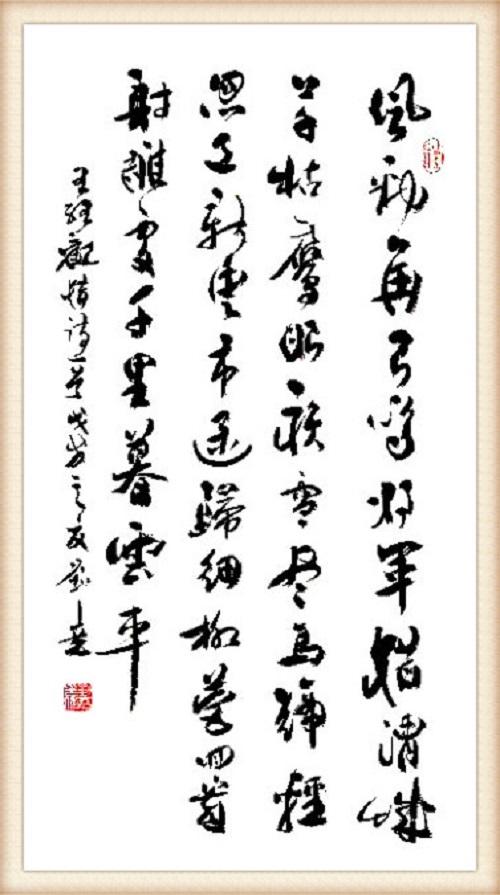 風勁角弓鳴將軍獵渭城
草枯鷹眼疾雪盡馬蹄輕
忽過新豐市還歸細柳營回首
射雕處千里暮雲平
王維觀獵詩一首戊子之夏